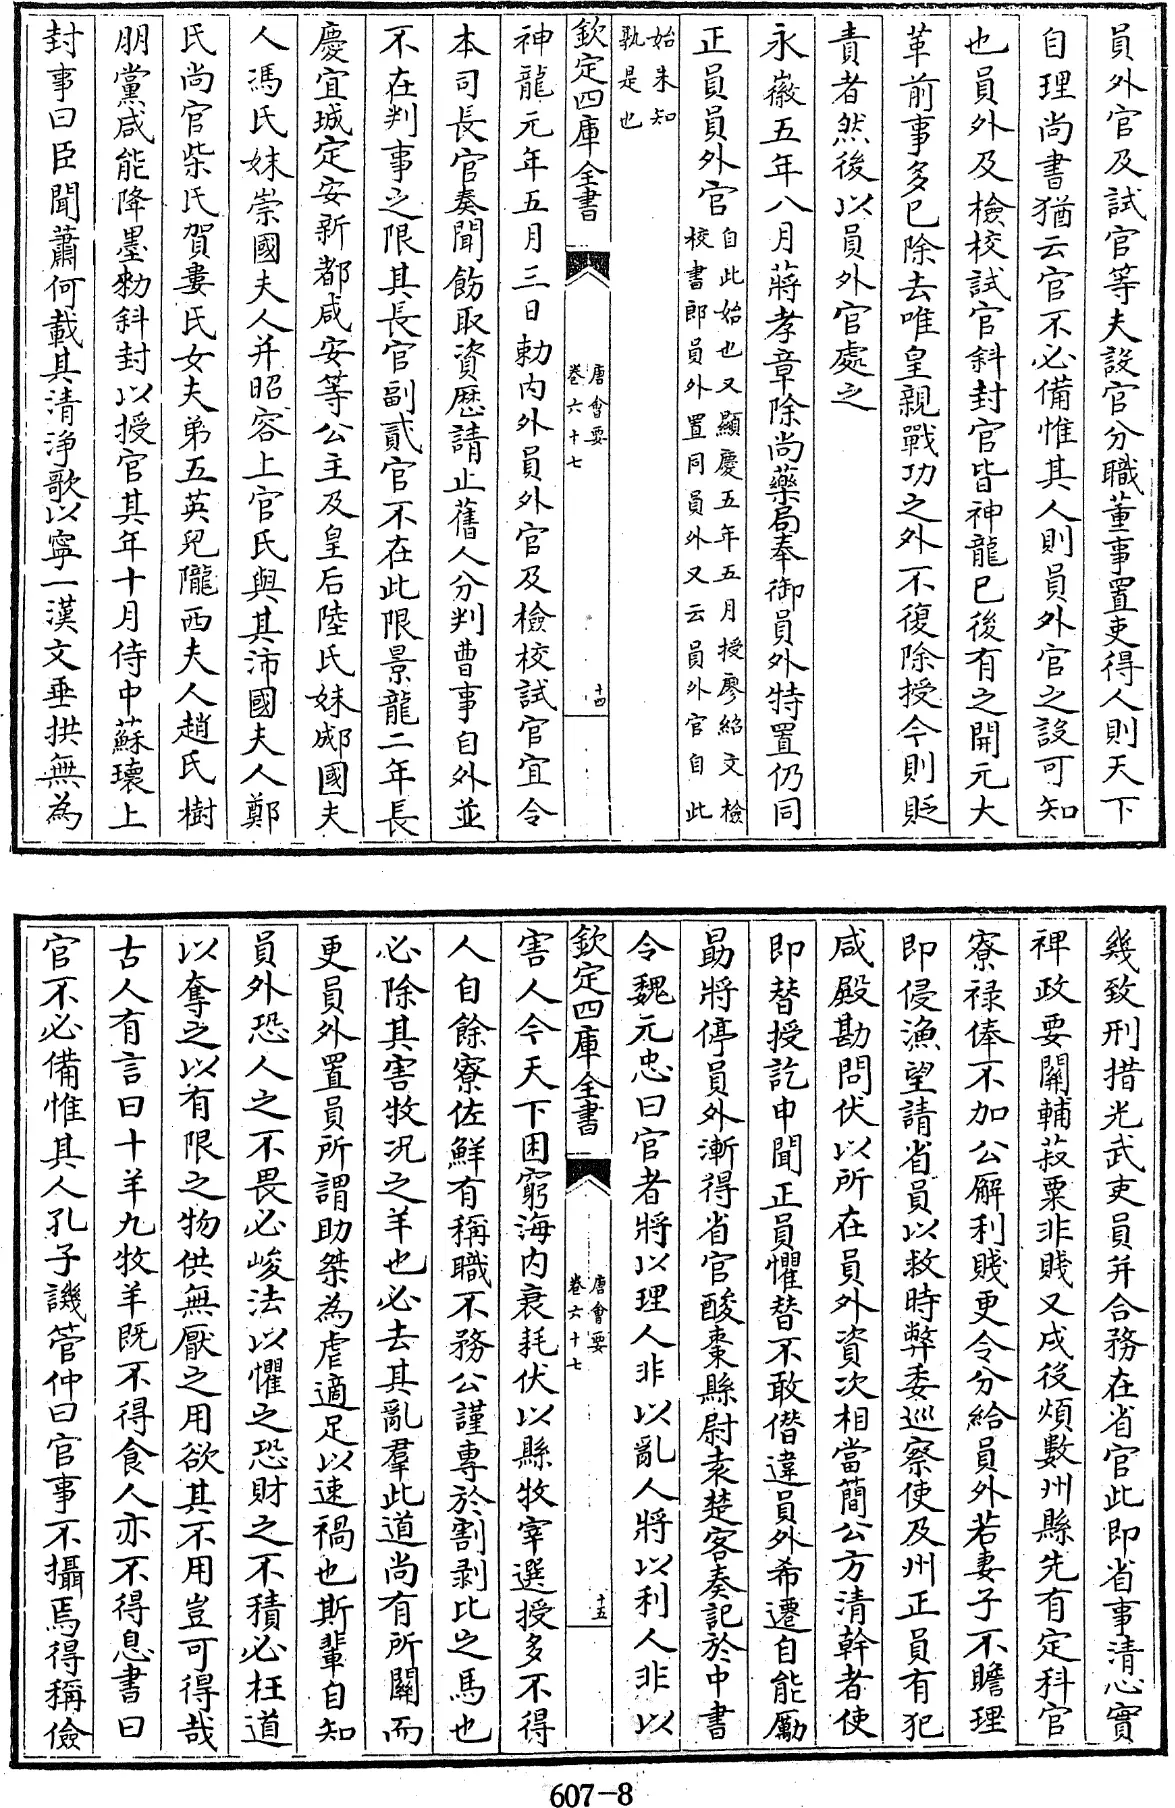 員外官及試官等夫設官分職董事置吏得人則天下
自理尚書猶云官不必備惟其人則員外官之設可知
也員外及檢校試官斜封官皆神龍已後有之開元大
革前事多已除去唯皇親戰功之外不復除授今則貶
責者然後以員外官處之
永徽五年八月蔣孝章除尚藥局奉御員外特置仍同
正員員外官自此始也又顯慶五年五月授廖紹文檢
校書郎員外置同員外又云員外官自此
始未知
孰是也
欽定四庫全書
唐會要
卷六十七
十四
神龍元年五月三日勅内外員外官及檢校試官宜令
本司長官奏聞飭取資歷請止舊人分判曹事自外並
不在判事之限其長官副貳官不在此限景龍二年長
慶宜城定安新都咸安等公主及皇后陸氏妹郕國夫
人馮氏妹崇國夫人并昭容上官氏與其沛國夫人鄭
氏尚官柴氏賀婁氏女夫弟五英兒隴西夫人趙氏樹
朋黨咸能降墨勅斜封以授官其年十月侍中蘇瓌上
封事曰臣聞蕭何載其清淨歌以寧一漢文垂拱無為
幾致刑措光武吏員并合務在省官此即省事清心實
裨政要關輔菽粟非賤又戍後煩數州縣先有定科官
寮禄俸不加公廨利賤更令分給員外若妻子不贍理
即侵漁望請省員以救時弊委巡察使及州正員有犯
咸殿勘問伏以所在員外資次相當簡公方清幹者使
即替授訖申聞正員懼替不敢僭違員外希遷自能勵
勗將停員外漸得省官酸棗縣尉袁楚客奏記於中書
令魏元忠曰官者將以理人非以亂人將以利人非以
欽定四庫全書
唐會要
卷六十七
十五
害人今天下困窮海内衰耗伏以縣牧宰選授多不得
人自餘寮佐鮮有稱職不務公謹專於割剥比之馬也
必除其害牧況之羊也必去其亂羣此道尚有所闗而
更員外置員所謂助桀為虐適足以速禍也斯輩自知
員外恐人之不畏必峻法以懼之恐財之不積必枉道
以奪之以有限之物供無厭之用欲其不用豈可得哉
古人有言曰十羊九牧羊既不得食人亦不得息書曰
官不必備惟其人孔子譏管仲曰官事不攝焉得稱儉
607-8